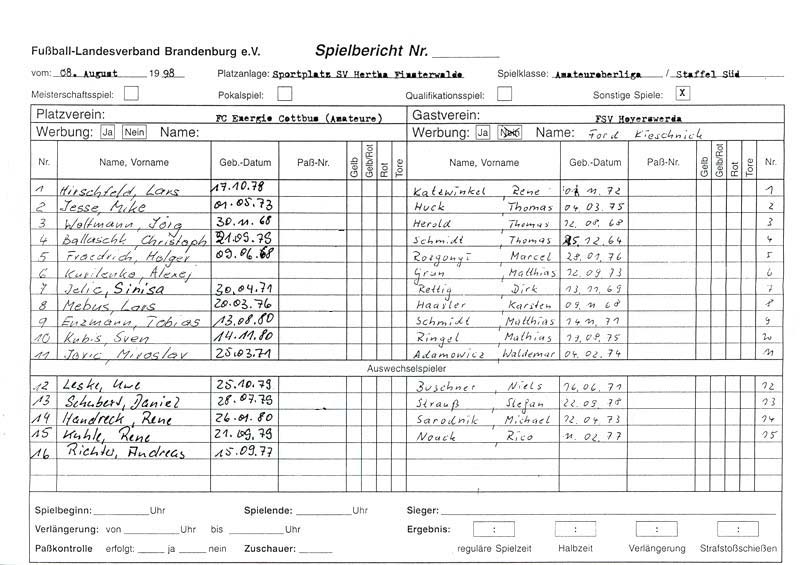 Fußball-Landesverband Brandenburg e.V. Spielbericht Nr.
vom: 08. August 1998 Platzanlage: Sportplatz SV Hertha Finsterwalde Spielklasse: Amateuroberliga / Staffel Süd
Meisterschaftsspiel: Pokalspiel: Qualifikationsspiel: Sonstige Spiele: X
Platzverein: FC Energie Cottbus (Amateure) Gastverein: FSV Hoyerswerda
Werbung: Ja Nein Name: Werbung: Ja Nein Name: Ford Kieschnick
Nr. Name, Vorname Geb.-Datum Paß-Nr. Gelb Gelb/Rot Rot Tore Name, Vorname Geb.-Datum Paß-Nr. Gelb Gelb/Rot Rot Tore Nr.
1 Hirschfeld, Lars 17.10.78 Katzwinkel, Rene 11.72 1
2 Jesse, Mike 01.05.73 Huck, Thomas 04.03.75 2
3 Woltmann, Jörg 30.11.68 Herold, Thomas 12.08.68 3
4 Ballaschk, Christoph 21.09.79 Schmidt, Thomas 12.64 4
5 Friedrich, Holger 09.06.68 Marcel 28.01.76 5
6 Kurilenko, Alexej Grün, Matthias 12.09.73 6
7 Jelic, Sinisa 30.04.71 Rettig, Dirk 13.11.69 7
8 Mebus, Lars 20.03.76 Haasler, Karsten 09.11.68 8
9 Enzmann, Tobias 13.08.80 Schmidt, Matthias 14.11.71 9
10 Kubis, Sven 14.11.80 Ringel, Mathias 19.08.75
11 Jovic, Miroslav 25.03.71 Adamowicz, Waldemar 04.02.74 11
Auswechselspieler
12 Leske, Uwe 25.10.79 Buschner, Niels 16.06.71 12
13 Schubert, Daniel 28.07.79 Strauß, Stefan 22.09.78 13
14 Handreck, Rene 26.01.80 Sarodnik, Michael 12.04.73 14
15 Kuhle, Rene 21.09.79 Noack, Rico 11.02.77 15
16 Richter, Andreas 15.09.77
Spielbeginn: Uhr Spielende: Uhr Sieger:
Verlängerung: von Uhr bis Uhr Ergebnis: : : : :
Paßkontrolle erfolgt: ja nein Zuschauer: reguläre Spielzeit Halbzeit Verlängerung Strafstoßschießen